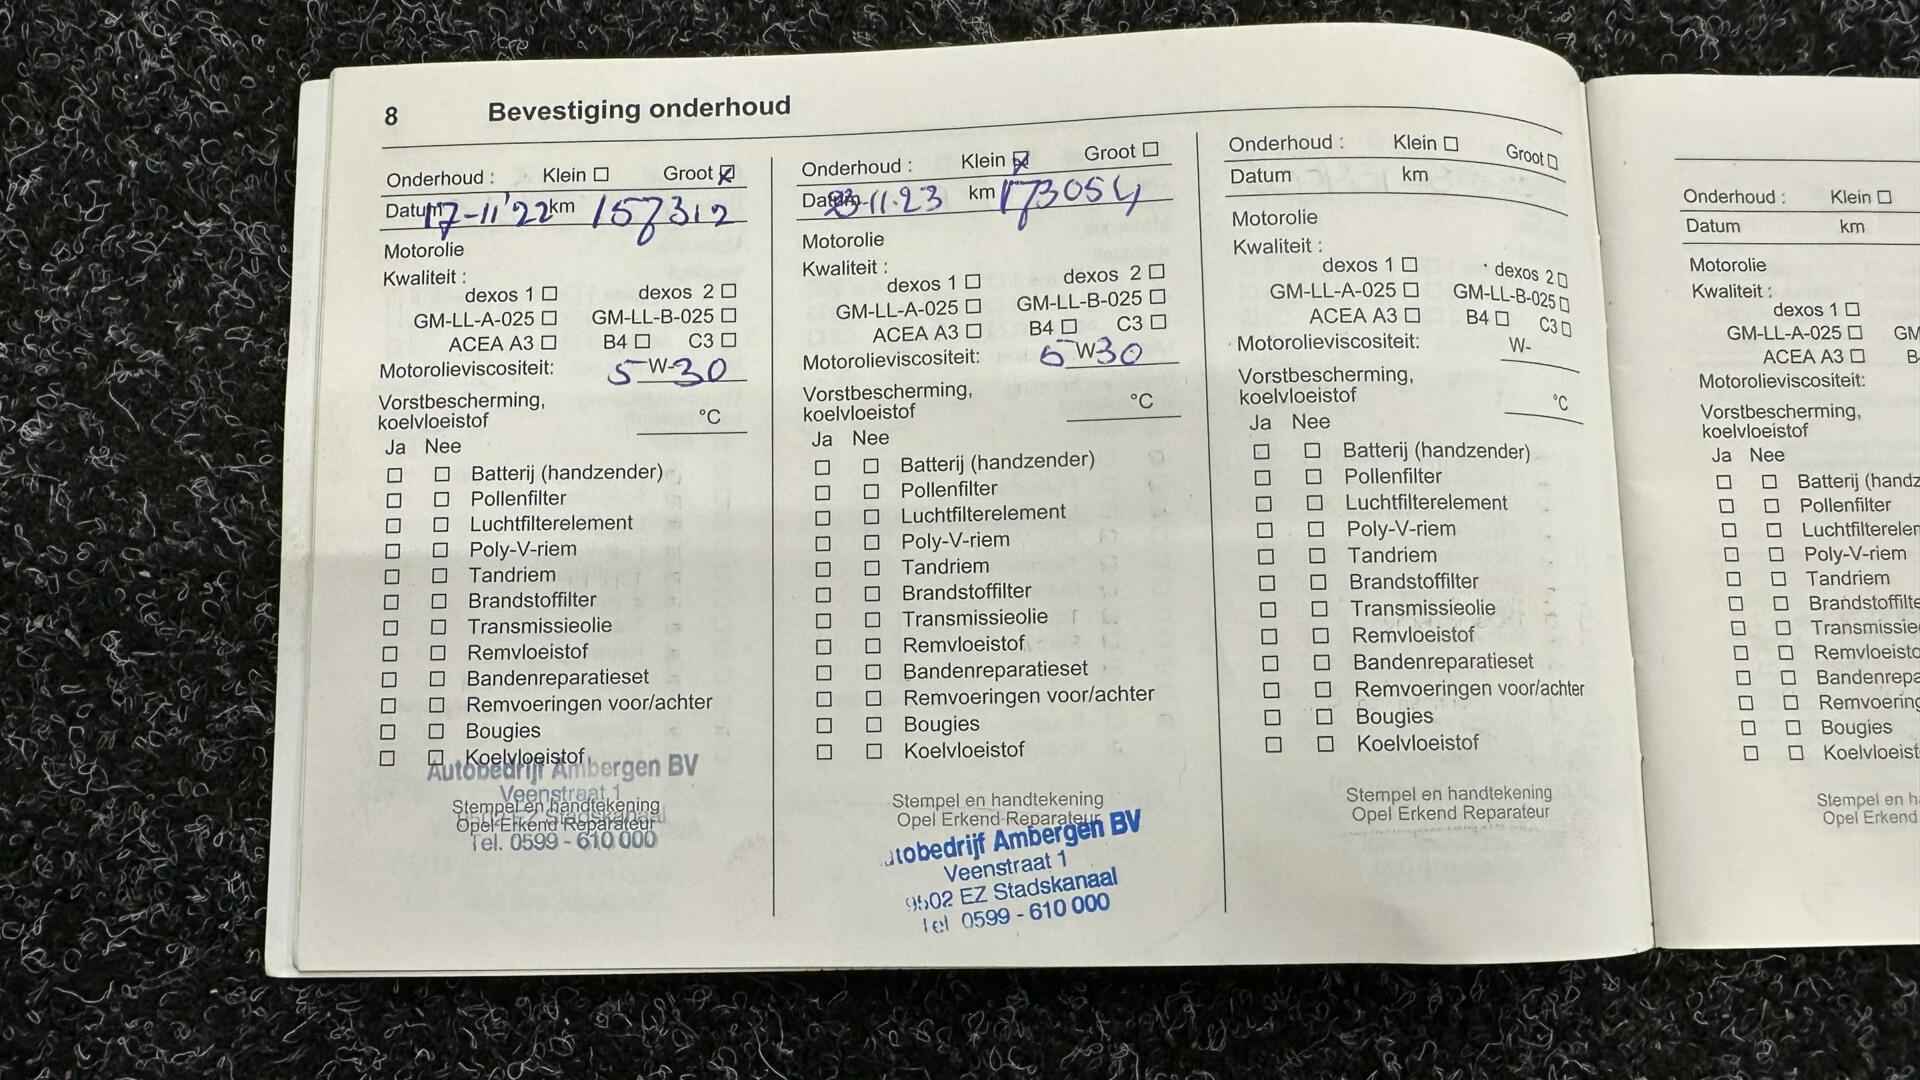 8 Bevestiging onderhoud
Onderhoud : Klein Groot
Datum 17-11'22 km 157312
Motorolie
Kwaliteit :
dexos 1 dexos 2
GM-LL-A-025 GM-LL-B-025
ACEA A3 B4 C3
Motorolieviscositeit: 5 W-30
Vorstbescherming,
koelvloeistof °C
Ja Nee
Batterij (handzender)
Pollenfilter
Luchtfilterelement
Poly-V-riem
Tandriem
Brandstoffilter
Transmissieolie
Remvloeistof
Bandenreparatieset
Remvoeringen voor/achter
Bougies
Koelvloeistof
Autobedrijf Ambergen BV
Veenstraat 1
Stempel en handtekening
9502 EZ Stadskanaal
Opel Erkend Reparateur
Tel. 0599 - 610 000
Onderhoud : Klein Groot
Datum 23-11-23 km 173054
Motorolie
Kwaliteit :
dexos 1 dexos 2
GM-LL-A-025 GM-LL-B-025
ACEA A3 B4 C3
Motorolieviscositeit: 5 W-30
Vorstbescherming,
koelvloeistof °C
Ja Nee
Batterij (handzender)
Pollenfilter
Luchtfilterelement
Poly-V-riem
Tandriem
Brandstoffilter
Transmissieolie
Remvloeistof
Bandenreparatieset
Remvoeringen voor/achter
Bougies
Koelvloeistof
Stempel en handtekening
Opel Erkend Reparateur
utobedrijf Ambergen BV
Veenstraat 1
9502 EZ Stadskanaal
Tel 0599 - 610 000
Onderhoud : Klein Groot
Datum km
Motorolie
Kwaliteit :
dexos 1 dexos 2
GM-LL-A-025 GM-LL-B-025
ACEA A3 B4 C3
Motorolieviscositeit: W-
Vorstbescherming,
koelvloeistof °C
Ja Nee
Batterij (handzender)
Pollenfilter
Luchtfilterelement
Poly-V-riem
Tandriem
Brandstoffilter
Transmissieolie
Remvloeistof
Bandenreparatieset
Remvoeringen voor/achter
Bougies
Koelvloeistof
Stempel en handtekening
Opel Erkend Reparateur
Onderhoud : Klein
Datum km
Motorolie
Kwaliteit :
dexos 1
GM-LL-A-025 GM
ACEA A3 B
Motorolieviscositeit:
Vorstbescherming,
koelvloeistof
Ja Nee
Batterij (handz
Pollenfilter
Luchtfilterele
Poly-V-riem
Tandriem
Brandstoffilte
Transmissie
Remvloeisto
Bandenrepa
Remvoering
Bougies
Koelvloeist
Stempel en h
Opel Erkend